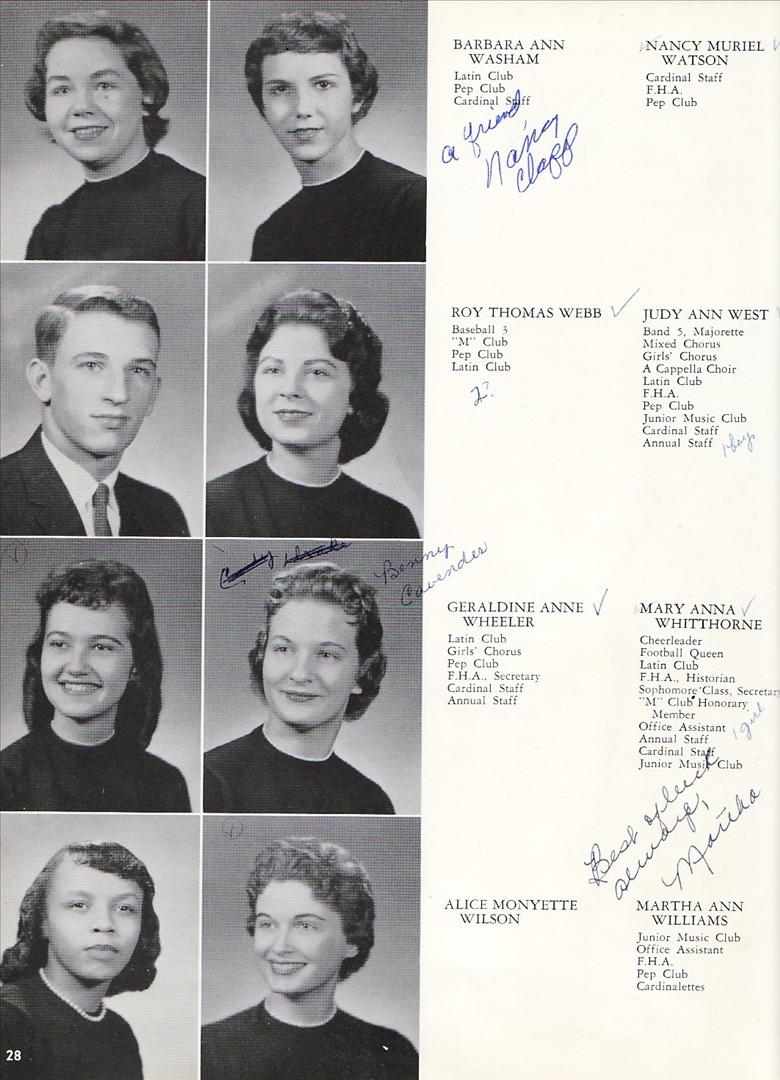 BARBARA ANN
WASHAM
Latin Club
Pep Club
Cardinal Staff
a friend,
Nancy
Clapp
NANCY MURIEL
WATSON
Cardinal Staff
F.H.A.
Pep Club
ROY THOMAS WEBB
Baseball 3
"M" Club
Pep Club
Latin Club
JUDY ANN WEST
Band 5, Majorette
Mixed Chorus
Girls' Chorus
A Cappella Choir
Latin Club
F.H.A.
Pep Club
Junior Music Club
Cardinal Staff
Annual Staff
1 boy
Benny
Cavender
GERALDINE ANNE
WHEELER
Latin Club
Girls' Chorus
Pep Club
F.H.A., Secretary
Cardinal Staff
Annual Staff
MARY ANNA
WHITTHORNE
Cheerleader
Football Queen
Latin Club
F.H.A., Historian
Sophomore Class, Secretary
"M" Club Honorary
Member
Office Assistant
Annual Staff
Cardinal Staff
Junior Music Club
1 girl
Best of luck
always,
Martha
ALICE MONYETTE
WILSON
MARTHA ANN
WILLIAMS
Junior Music Club
Office Assistant
F.H.A.
Pep Club
Cardinalettes
28